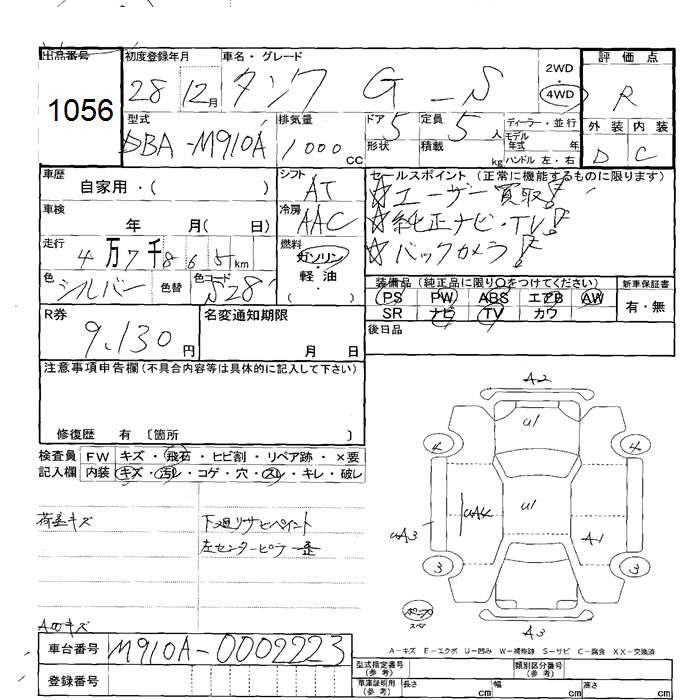 出品番号 初度登録年月 車名・グレード 2WD・4WD 評価点
1056 28 12月 タンク G_S R
型式 排気量 ドア形状 定員 積載 ディーラー・並行 外装 内装
モデル年式 年
DBA-M910A 1000cc 5 5人 kg ハンドル 左・右 D C
車歴 シフト セールスポイント (正常に機能するものに限ります)
自家用・( ) AT ☆ユーザー買取!
車検 年 月( 日) 冷房 AAC ☆純正ナビ・TV!
走行 4万7千865km 燃料 ガソリン・軽油 ☆バックカメラ!
色 シルバー 色替 色コード S28 ( )
装備品 (純正品に限り○をつけてください) 新車保証書
PS PW ABS エアB AW 有・無
SR ナビ TV カワ
R券 名変通知期限 後日品
9,130円 月 日
注意事項申告欄(不具合内容等は具体的に記入して下さい)
修復歴 有 〔箇所 〕
検査員 FW キズ・飛石・ヒビ割・リペア跡・×要
記入欄 内装 キズ・汚レ・コゲ・穴・スレ・キレ・破レ
荷室キズ 下廻りサビペイント
左センターピラー歪
A2
U1
4 4
UA3 UA4 U1 A1
3 3
A3
Aのキズ
A-キズ E-エクボ U-凹み W-補修跡 S-サビ C-腐食 XX-交換済
車台番号 M910A-0002223
型式指定番号(参考) 類別区分番号(参考)
登録番号 車庫証明用(参考) 長さ cm 幅 cm 高さ cm